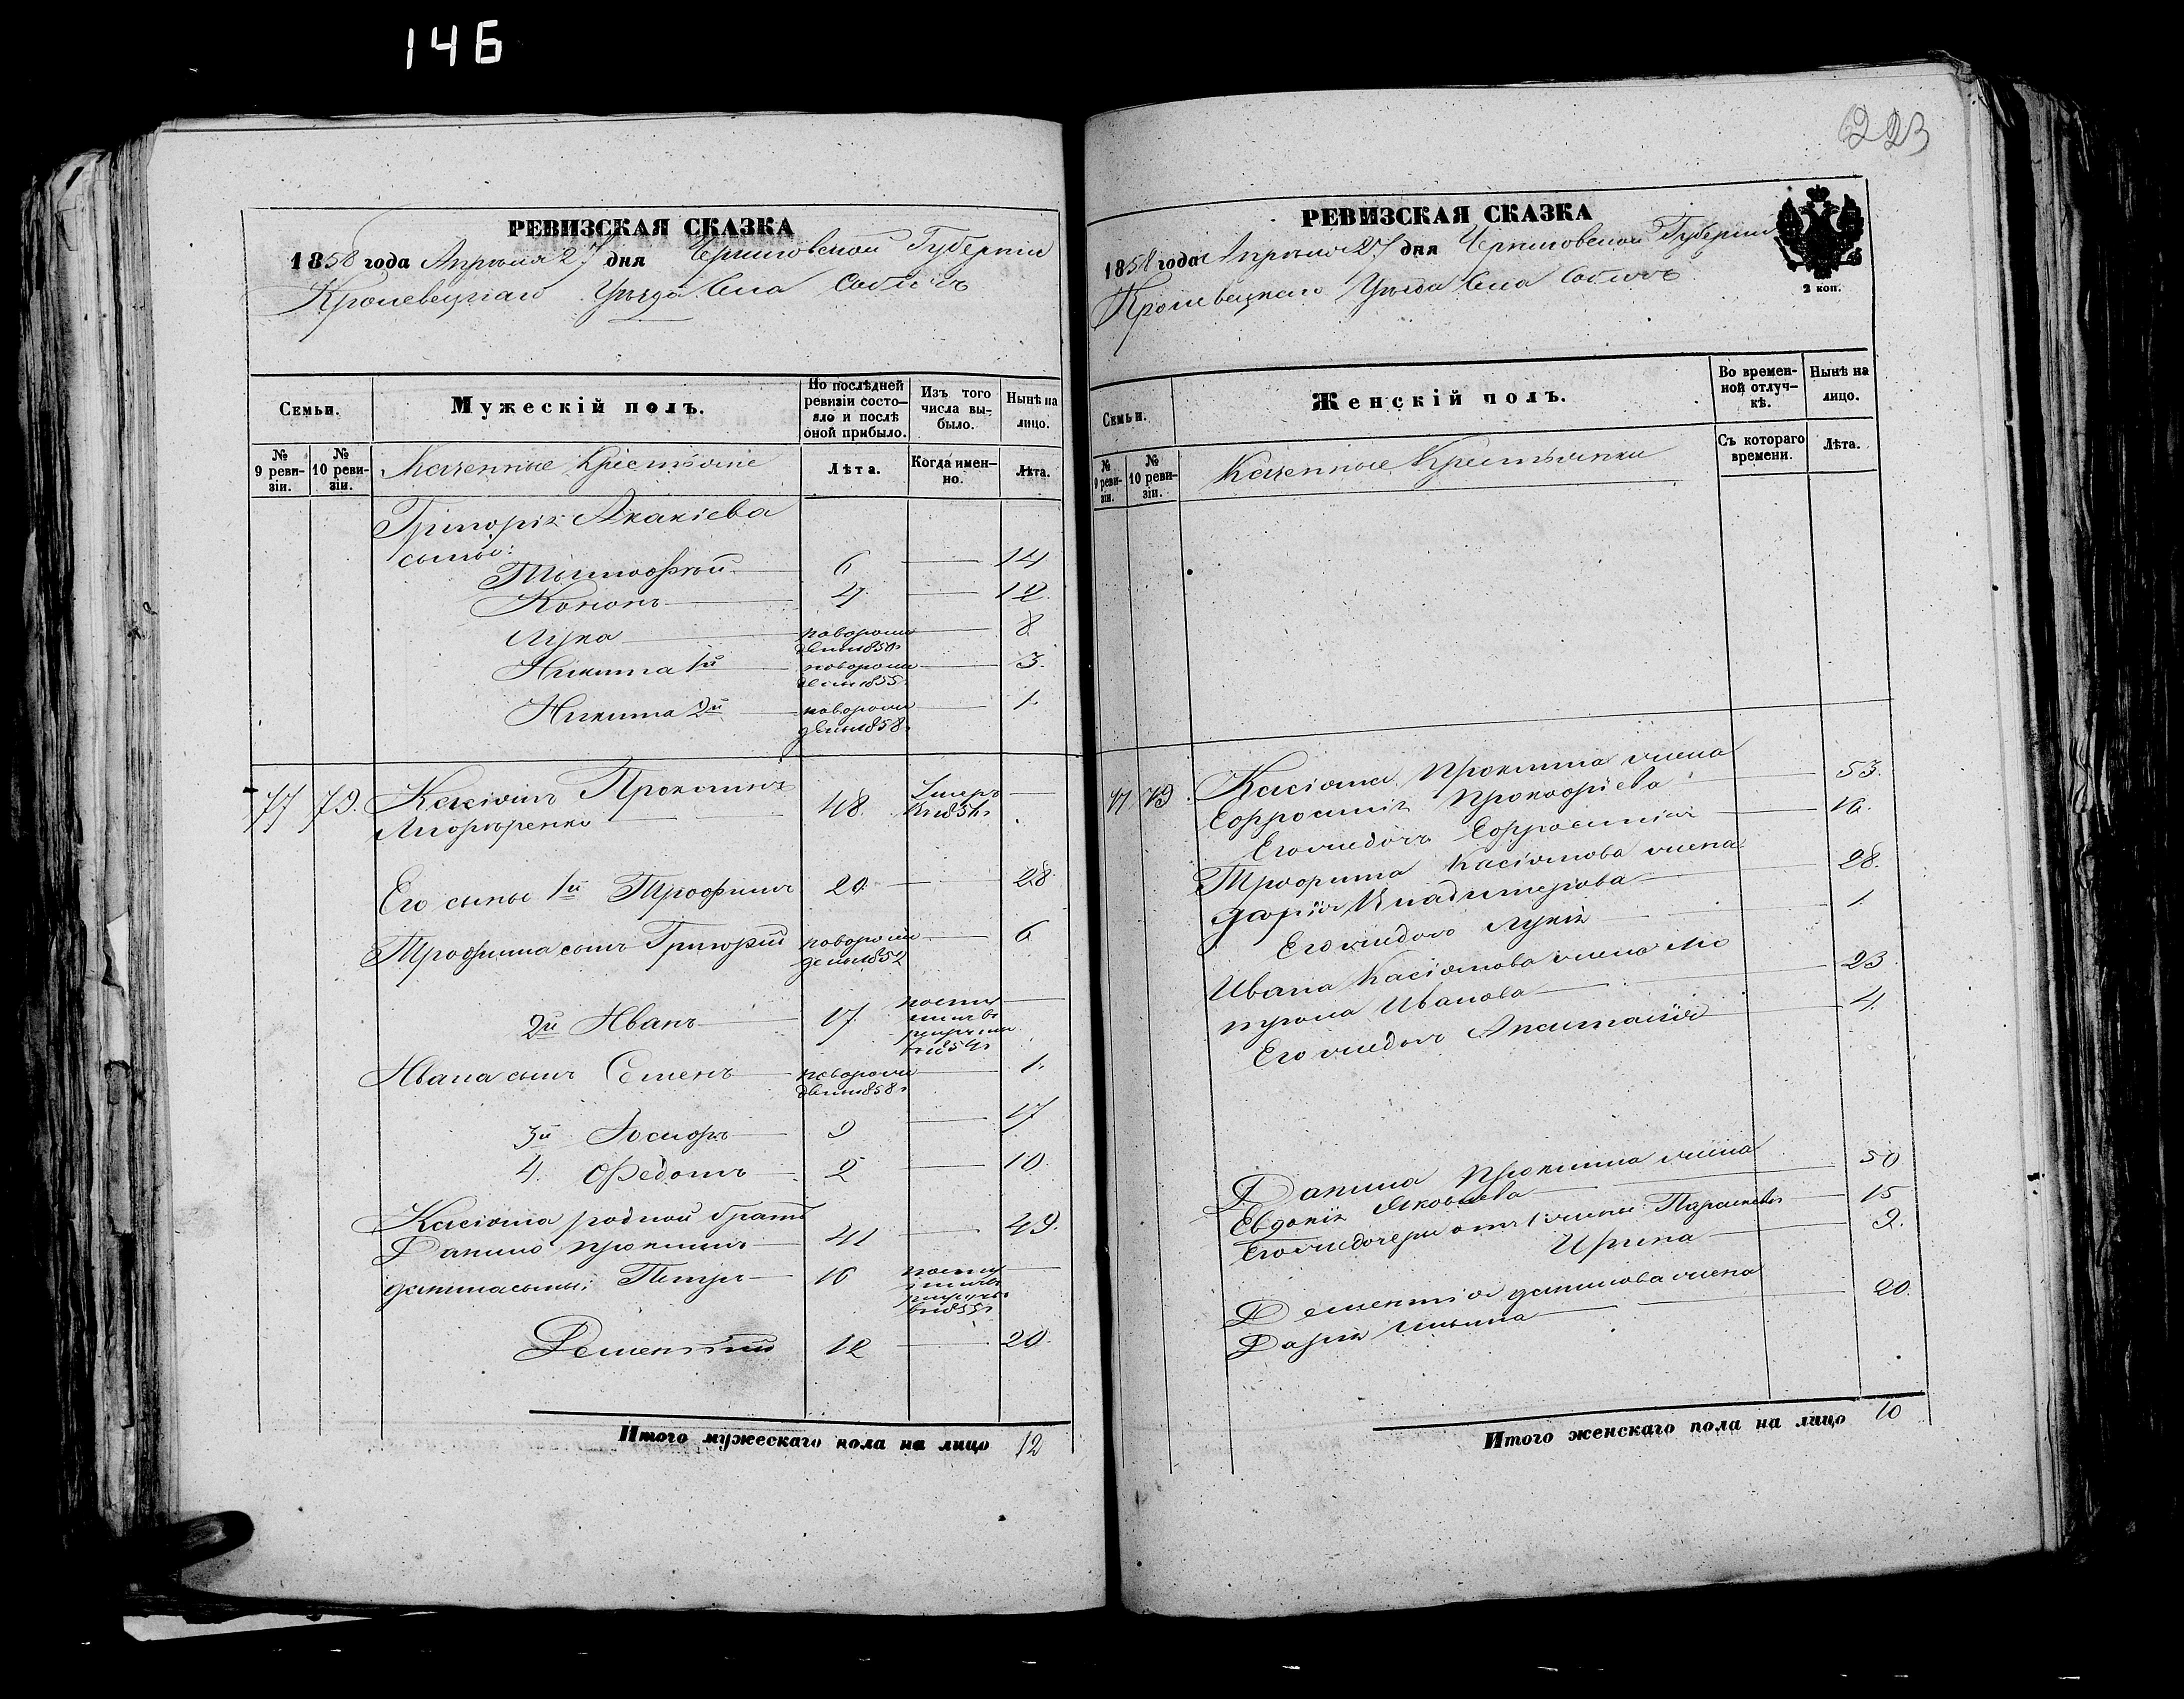 146
223
РЕВИЗСКАЯ СКАЗКА
1858 года Апрѣля 27 дня Черниговской Губерніи
Кролевецкаго Уѣзда Села Собичъ
Семьи.
Мужескій полъ.
По послѣдней ревизіи состояло и послѣ оной прибыло.
Изъ того числа выбыло.
Нынѣ на лицо.
№ 9 ревизіи.
№ 10 ревизіи.
Казенные Крестьяне
Лѣта.
Когда именно.
Лѣта.
Григорія Акакіева
сыны:
Тымофѣй 6 — 14
Кононъ 4 — 12.
Лука новорожденъ 1850г — 8
Никита 1й новорожденъ 1855г — 3.
Никита 2й новорожденъ 1858г — 1.
77 79. Касіянъ Прокминъ 48. Умеръ —
Въ 185
Его сыны 1й Трофимъ 20. — 28
Трофима сынъ Григорій новорожденъ 1852 — 6
2й Иванъ 17. поступилъ въ рекруты въ 1854г —
Ивана сынъ Семенъ новорожденъ 1858г — 1.
3й 9 — 17
4. Федотъ 2 — 10
Касіяна родной братъ
Данило 41 — 49.
Данила сыны: Петръ 16 поступилъ въ рекруты въ 1855г —
Дементій 12 — 20.
Итого мужескаго пола на лицо 12
РЕВИЗСКАЯ СКАЗКА
1858 года Апрѣля 27 дня Черниговской Губерніи
Кролевецкаго Уѣзда Села Собичъ
2 коп.
Семьи.
Женскій полъ.
Во временной отлучкѣ.
Нынѣ на лицо.
№ 9 ревизіи.
№ 10 ревизіи.
Казенные Крестьянки
Съ котораго времени.
Лѣта.
77 79. Касіяна жена
Ефросинія Прокофіева — 53.
Его же дочь Ефросинія —
Трофима Касіянова жена
Дарія Владимерова — 28.
Его же дочь Лукія — 1
Ивана Касіянова жена Мо
трона Иванова — 23
Его же дочь Анастасія — 4.
Данила жена
Евдокія Яковлева — 50
Его же дочери отъ 1 жены: Параскева — 15
Ирина — 9.
Дементія Данилова жена
Дарія Ильина — 20.
Итого женскаго пола на лицо 10